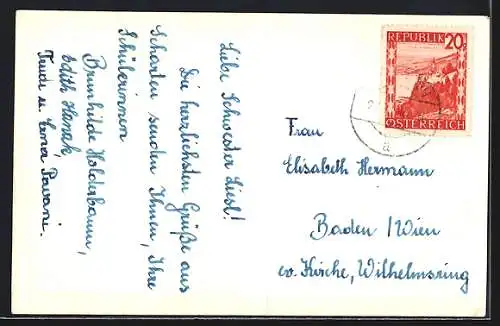 Liebe Schwester Liesl!
Die herzlichsten Grüße aus
Schorten senden Ihnen, Ihre
Schülerinnen
Brunhilde Holderbaum,
Edith Hanak,
Trude u.
REPUBLIK
20g
ÖSTERREICH
a
Frau
Elisabeth Hermann
Baden / Wien
ev. Kirche, Wilhelmsring